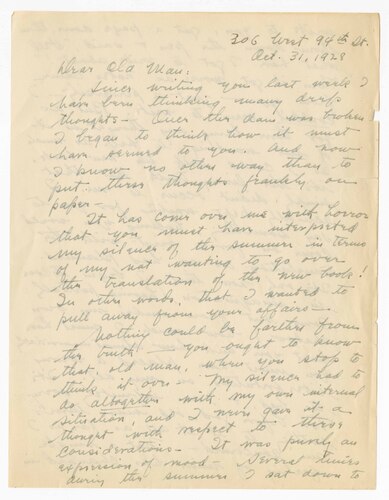 306 West 94th St.
Oct. 31, 1928
Dear Old Man:
Since writing you last week I
have been thinking many deep
thoughts – Once the dam was broken
I began to think how it must
have seemed to you. And now
I know no other way than to
put these thoughts frankly on
paper –
It has come over me with horror
that you must have interpreted
my silence of the summer in terms
of my not wanting to go over
the translation of the new book!
In other words, that I wanted to
pull away from your affairs –
Nothing could be farther from
the truth! – you ought to know
that, old man, when you stop to
think it over – My silence had to
do altogether with my own internal
situation, and I never gave it a
thought with respect to these
considerations – It was purely an
expression of mood – Several times
during the summer I sat down to